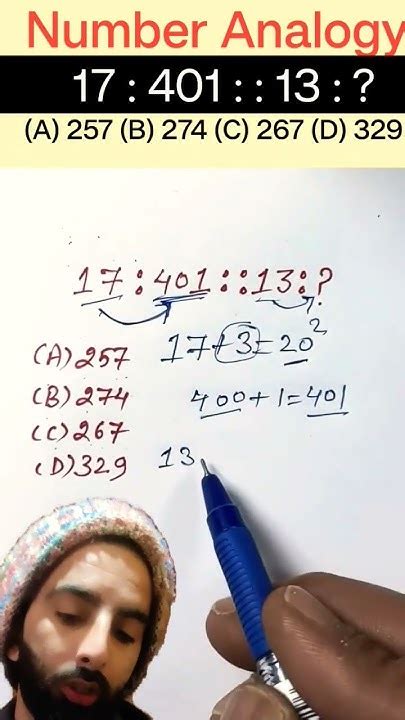 Number Analogy
17 : 401 : : 13 : ?
(A) 257 (B) 274 (C) 267 (D) 329
17 : 401 :: 13 : ?
(A) 257
17+3=20²
(B) 274
400+1=401
(C) 267
(D) 329
13